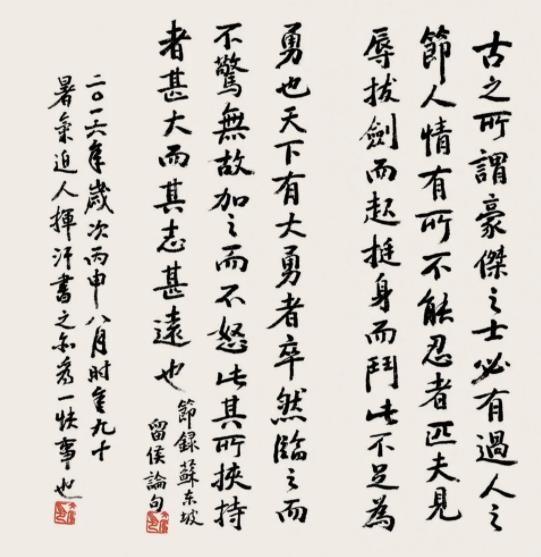 古之所謂豪傑之士必有過人之
節人情有所不能忍者匹夫見
辱拔劍而起挺身而鬥此不足為
勇也天下有大勇者卒然臨之而
不驚無故加之而不怒此其所挾持
者甚大而其志甚遠也
節録蘇东坡
留侯論句
二〇一六年歲次丙申八月时年九十
暑氣迫人揮汗書之亦為一快事也